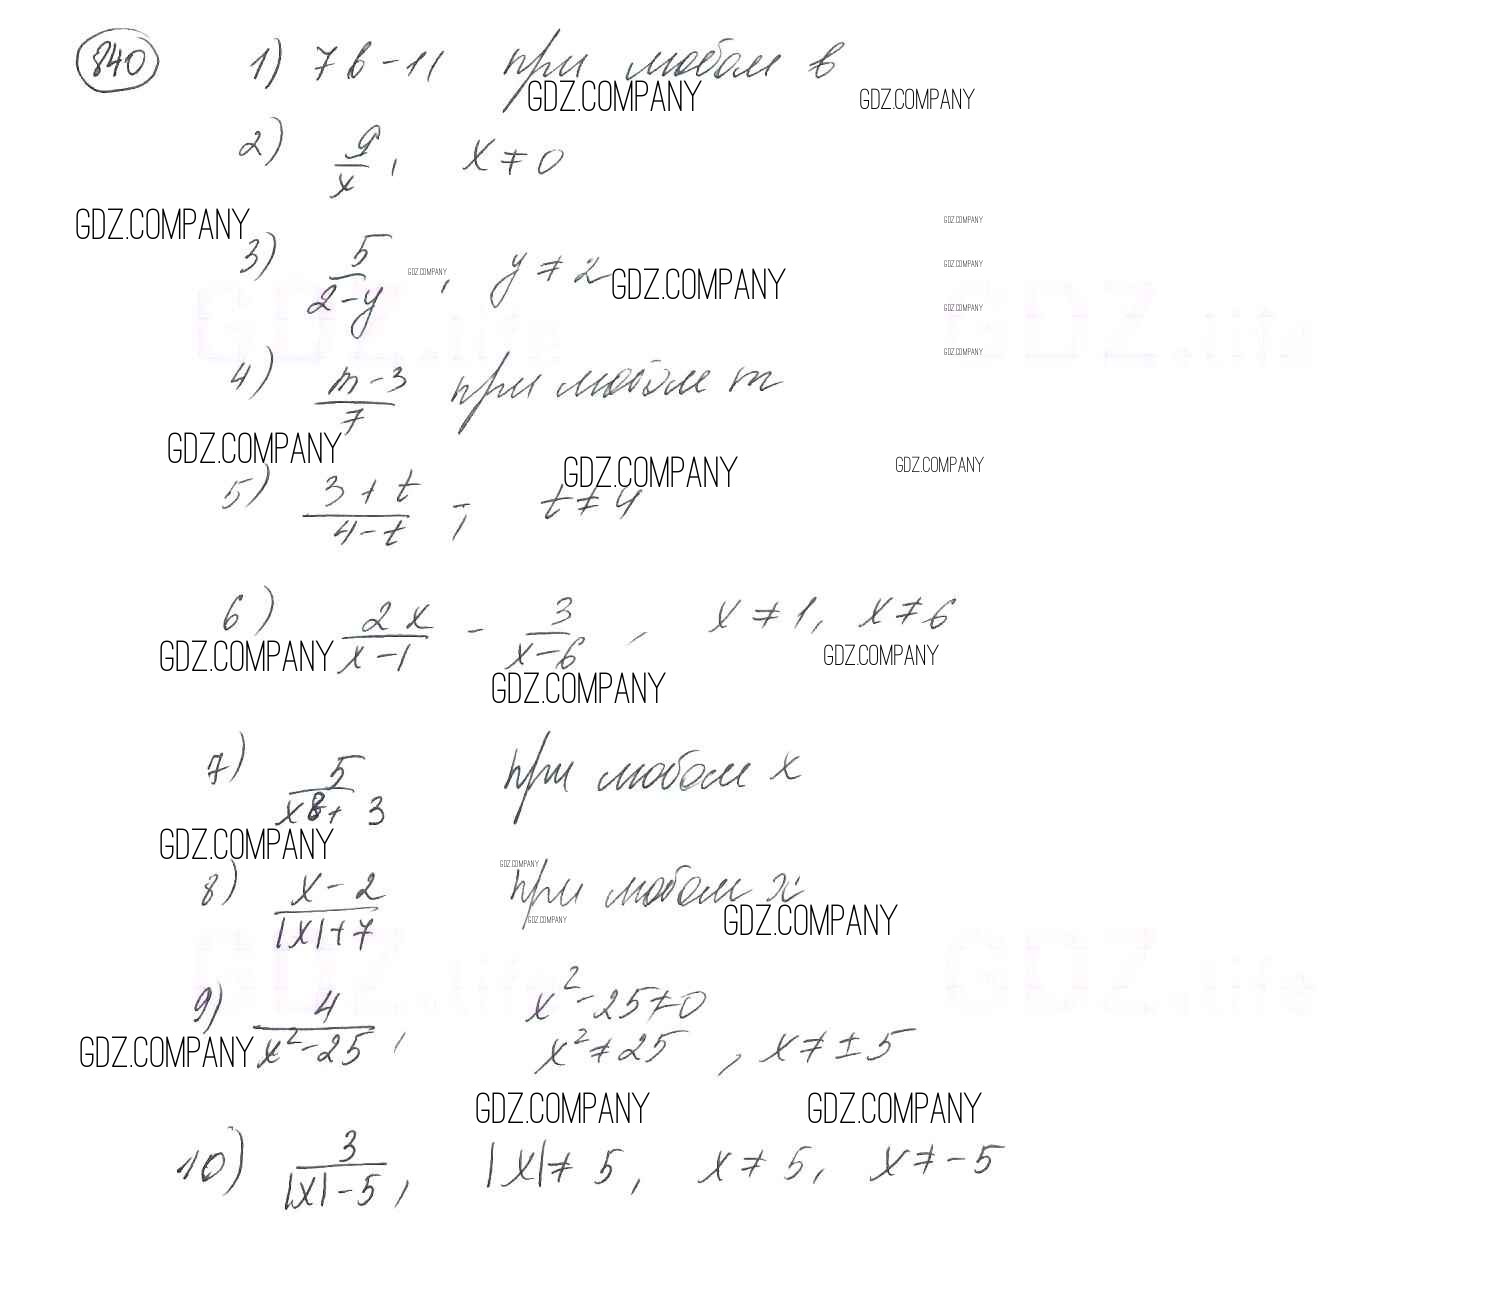 840 1) 7b-11 при любом b
GDZ.COMPANY GDZ.COMPANY
2) 9/x, x≠0
GDZ.COMPANY GDZ.COMPANY
3) 5/(2-y), y≠2
GDZ.COMPANY GDZ.COMPANY GDZ.COMPANY
GDZ.COMPANY
GDZ.life GDZ.life
GDZ.COMPANY
4) (m-3)/7 при любом m
GDZ.COMPANY GDZ.COMPANY GDZ.COMPANY
5) (3+t)/(4-t); t≠4
6) 2x/(x-1) - 3/(x-6), x≠1, x≠6
GDZ.COMPANY GDZ.COMPANY
GDZ.COMPANY
7) 5/(x⁸+3) при любом x
GDZ.COMPANY
GDZ.COMPANY
8) (x-2)/(|x|+7) при любом x
GDZ.COMPANY GDZ.COMPANY
GDZ.life GDZ.life
9) 4/(x²-25), x²-25≠0
x²≠25, x≠±5
GDZ.COMPANY
GDZ.COMPANY GDZ.COMPANY
10) 3/(|x|-5), |x|≠5, x≠5, x≠-5